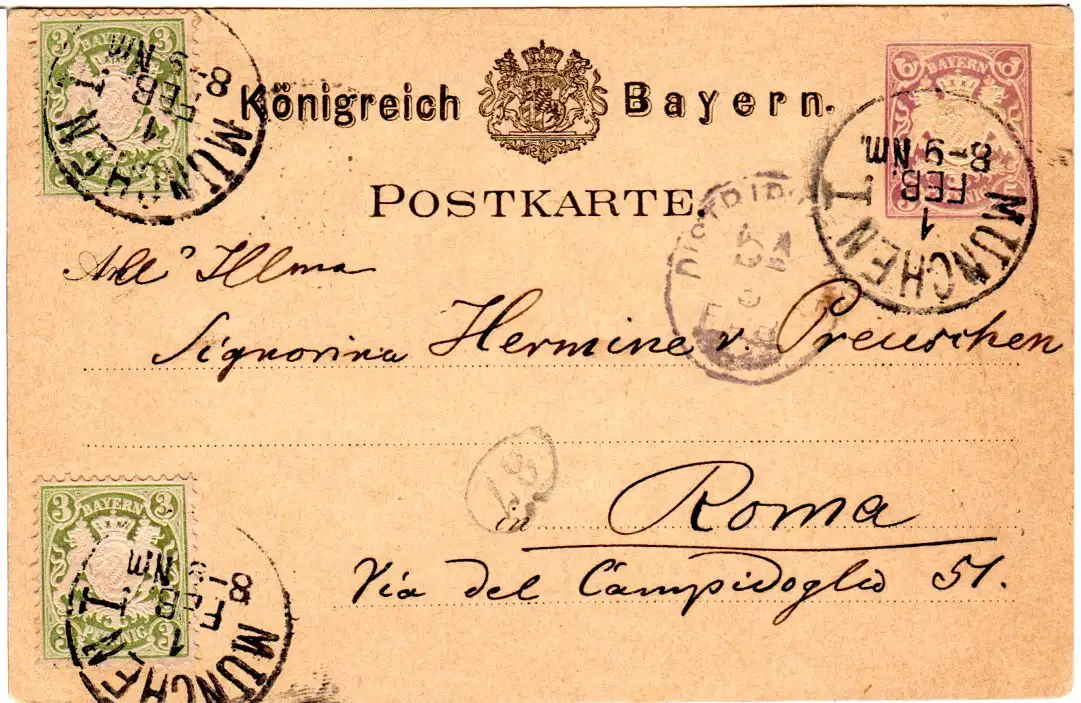 3 BAYERN 3
3 PFENNIG 3
MÜNCHEN I.
1
FEB.
8-9 NM.
Königreich Bayern.
POSTKARTE.
BAYERN
PFENNIG
MÜNCHEN I
1
FEB.
8-9 NM.
DISTRIB
All' Illma
Signorina Hermine v. Preuschen
in Roma
Via del Campidoglio 51.
3 BAYERN 3
3 PFENNIG 3
MÜNCHEN I.
1
FEB
8-9 NM